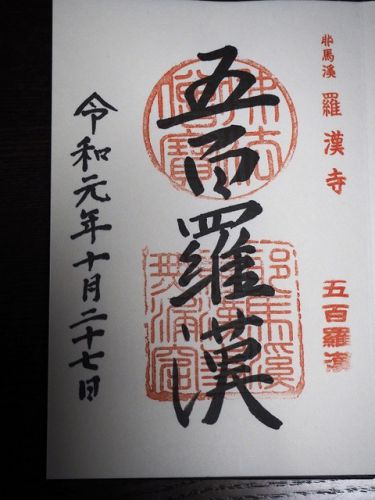 耶馬溪 羅漢寺
五百羅漢
五百羅漢
令和元年十月二十七日